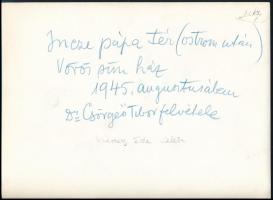 Incze pápa tér (ostrom után)
Vörös sün ház
1945. augusztusában
Dr Csörgeő Tibor felvétele